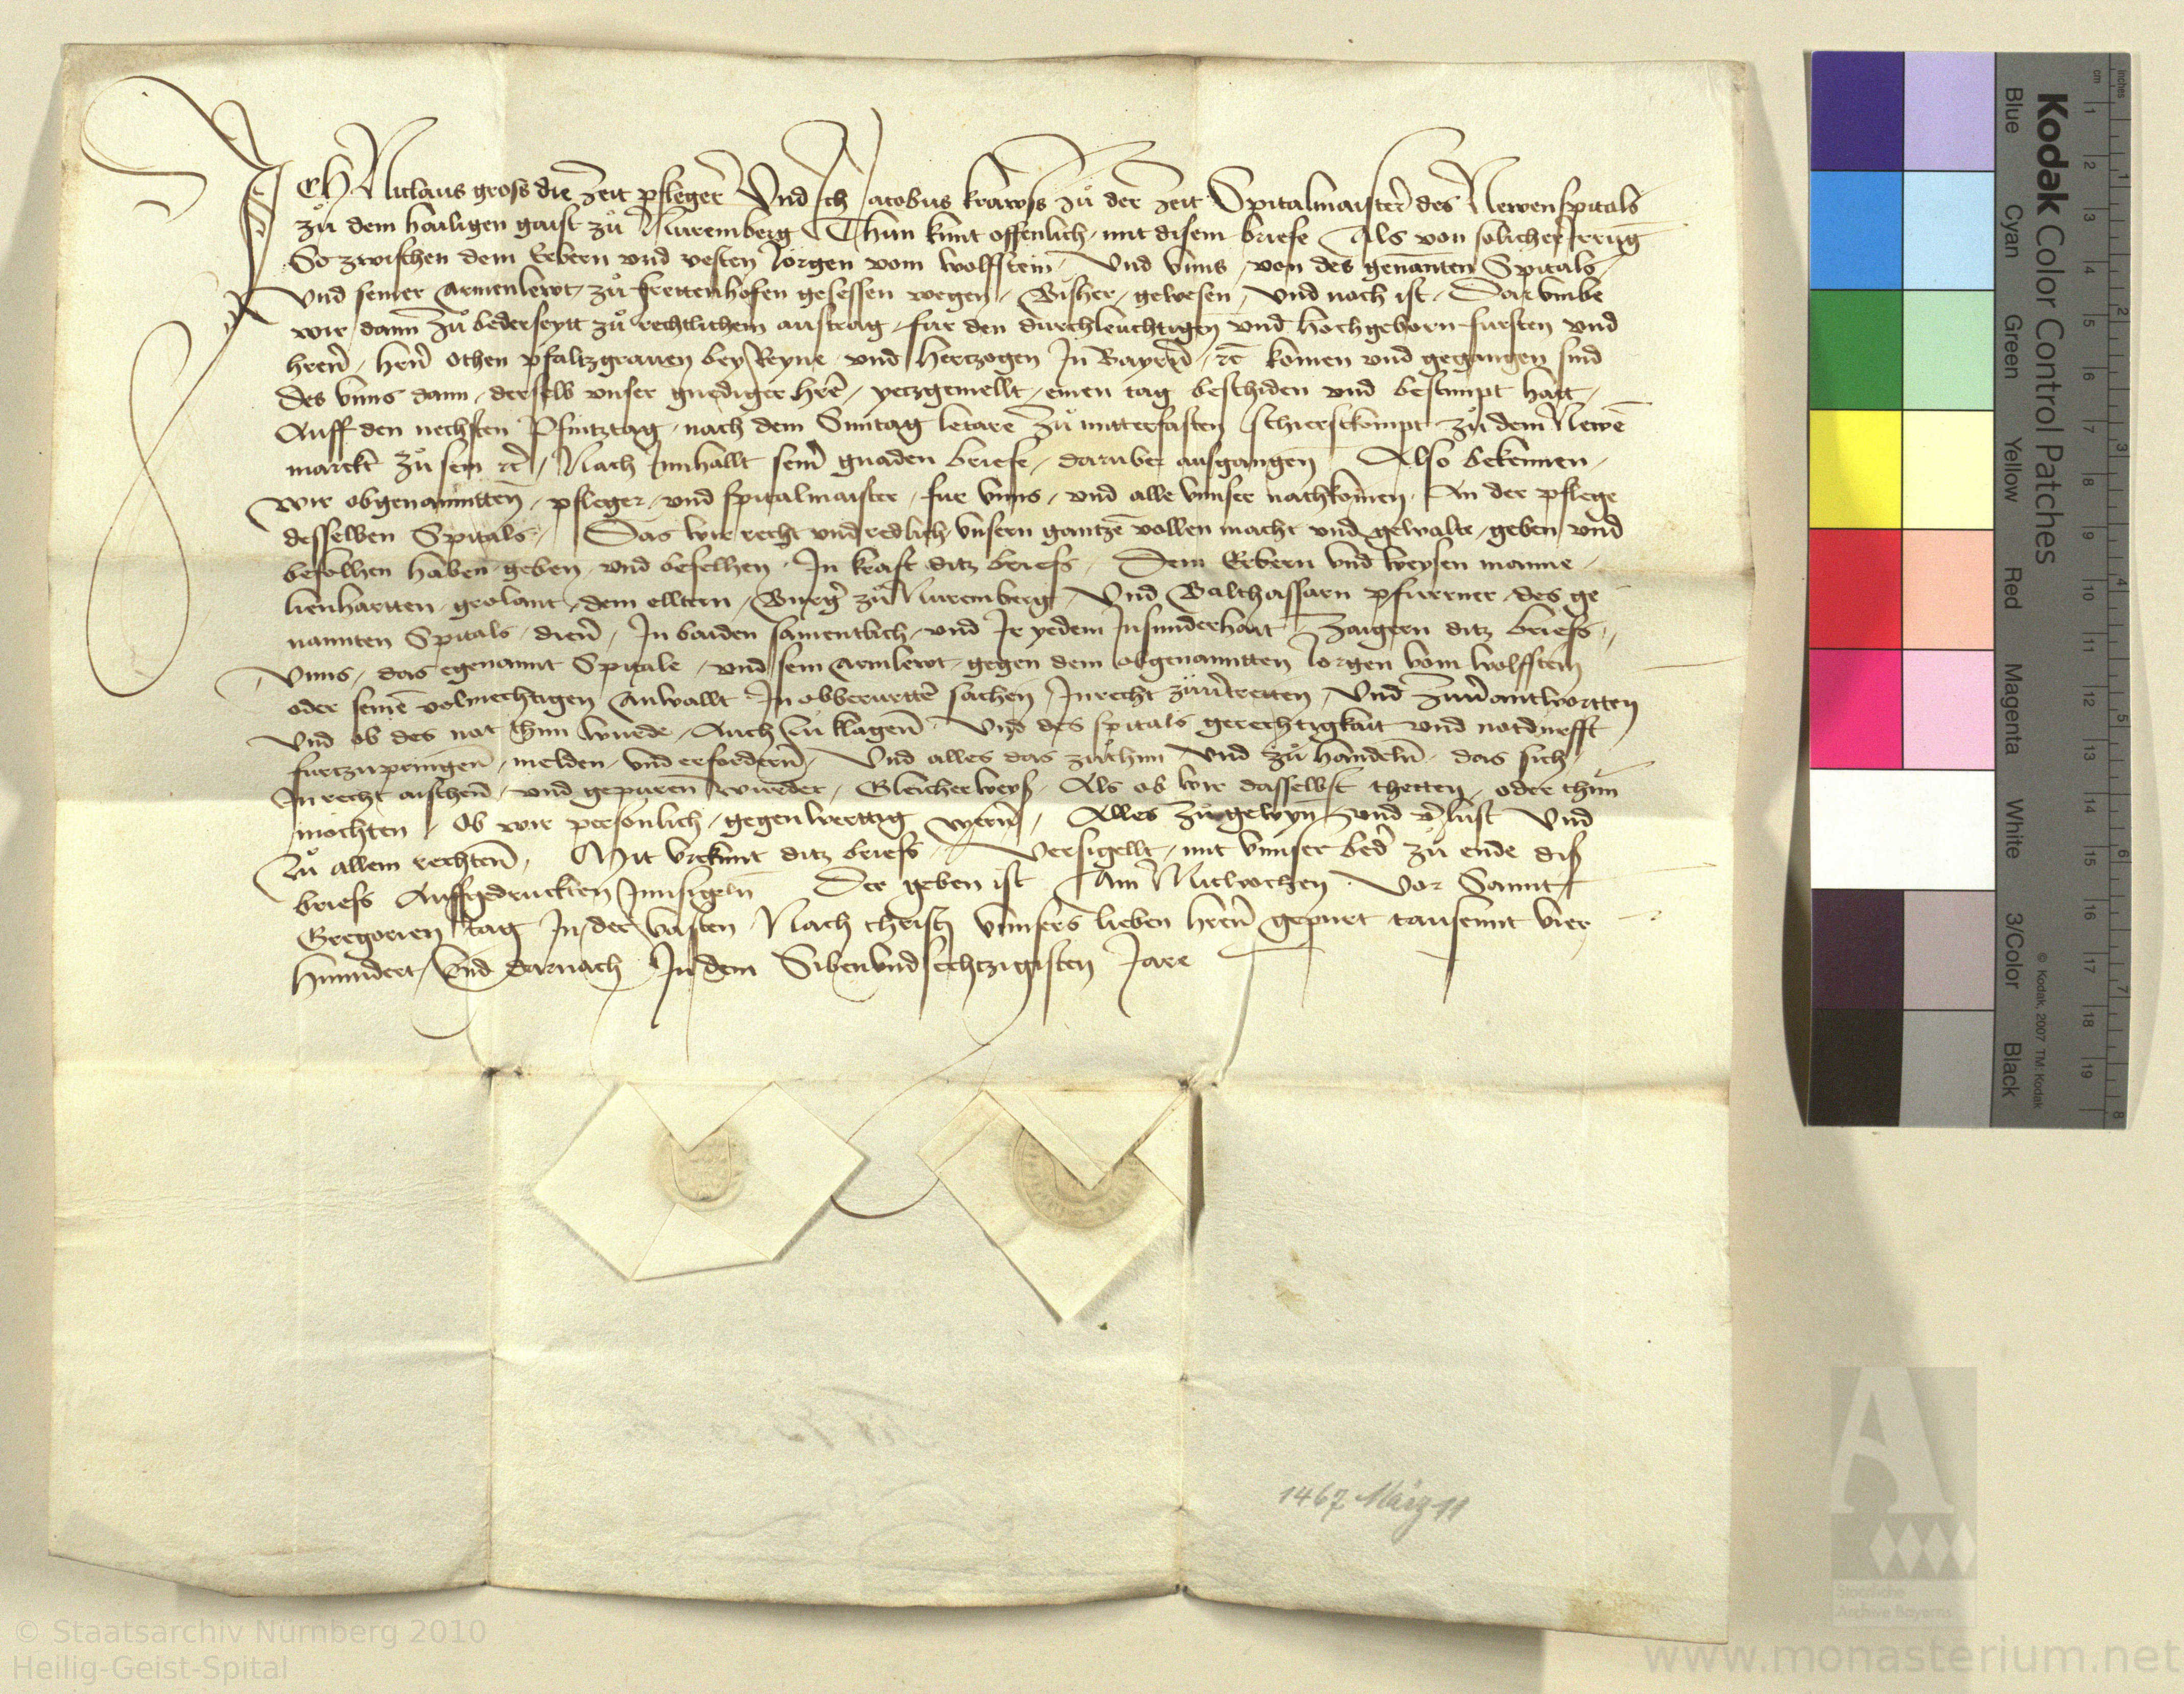 ICH Niclaus gross die zeit pfleger Vnd Ich Jacobus krawss zů der zeit Spitalmaister des Newen spitals
zů dem hailigen gaist zů Nuremberg Thun kunt offenlich mit disem briefe Als von solicher Irrug
So zwischen dem Erbern vnd vesten Jorgen vom wolffstein Vnd vnns von des genanten Spitals
Vnd seiner Armenlewt zů frettenhofen gesessen wegen Bisher gewesen vnd noch ist Dar vmbe
wir dann zů bederseytt zů rechtlichem austrag fur den durchleuchtigen vnd hochgeborn fursten vnd
hren hern Othen pfaltzgrauen bey Reyne vnd hertzogen In Bayrn ꝛc komen vnd gegangen sind
Des vnns dann derselb vnser gnediger hre yetzgemellt einen tag beschiden vnd bestimpt hatt
Auff den nechsten Pfintztag nach dem Suntag letare zů mitterfasten schierstkompt zů dem Newē
marckt zů sein ꝛc Nach Innhallt seinr gnaden briefe daruber ausgangen Also bekennen
wir obgenanntten pfleger vnd spitalmaister fur vnns vnd alle vnnser nachkomen An der pflege
desselben Spitals Das wir recht vnd redlich vnsern gantzē vollen macht vnd gewalte geben vnd
befolhen haben geben vnd befelhen In kraft ditz briefs Dem Erbern vnd weysen manne
lienhartten grolant dem elltern Burgr zů Nuremberg Vnd Balthassarn pfurrner des ge
nannten Spitals dienr In baiden samentlich vnd Ir yedem Insunderhait Zaigern ditz briefs
Vnns das egenannt Spitale vnd sein Armlewt gegen dem obgenanntten Jorgen vom wolffstein
oder seinē volmechtigen Anwallt In obberurttē sachen Inrecht zůuertretten Vnd zuuerantwortten
Vnd ob des not thun wurde Auch zu klagen Vnd des spitals gerechtigkait vnd notdurfft
furtzupringen melden vnd erfordern Vnd alles das zůthun Vnd zů handeln das sich
In recht aischend vnd gepuren wurdet Gleicherweys Als ob wir dasselbst thetten oder thun
mochten Ob wir personlich gegenwerttig wern Alles zů gewyn vnd verlust Vnd
Zů allem rechten Mit vrkunt ditz briefs Versigellt mit vnnser beder zů ende diß
briefs Auffgedruckten Innsigeln Der geben ist Am Mitwochen Vor Sannt
Gregorien tag In der vasten Nach christi vnnsers lieben hren gepurt tausennt vier
hunndert Vnd darnach In dem Sibenvndsechtzigisten Jare
1467 März 11
Kodak Color Control Patches
Blue Cyan Green Yellow Red Magenta White 3/Color Black
© Kodak, 2007 TM: Kodak
cm 1 2 3 4 5 6 7 8 9 10 11 12 13 14 15 16 17 18 19
inches 1 2 3 4 5 6 7 8
Staatliche
Archive Bayerns
© Staatsarchiv Nürnberg 2010
Heilig-Geist-Spital
www.monasterium.net